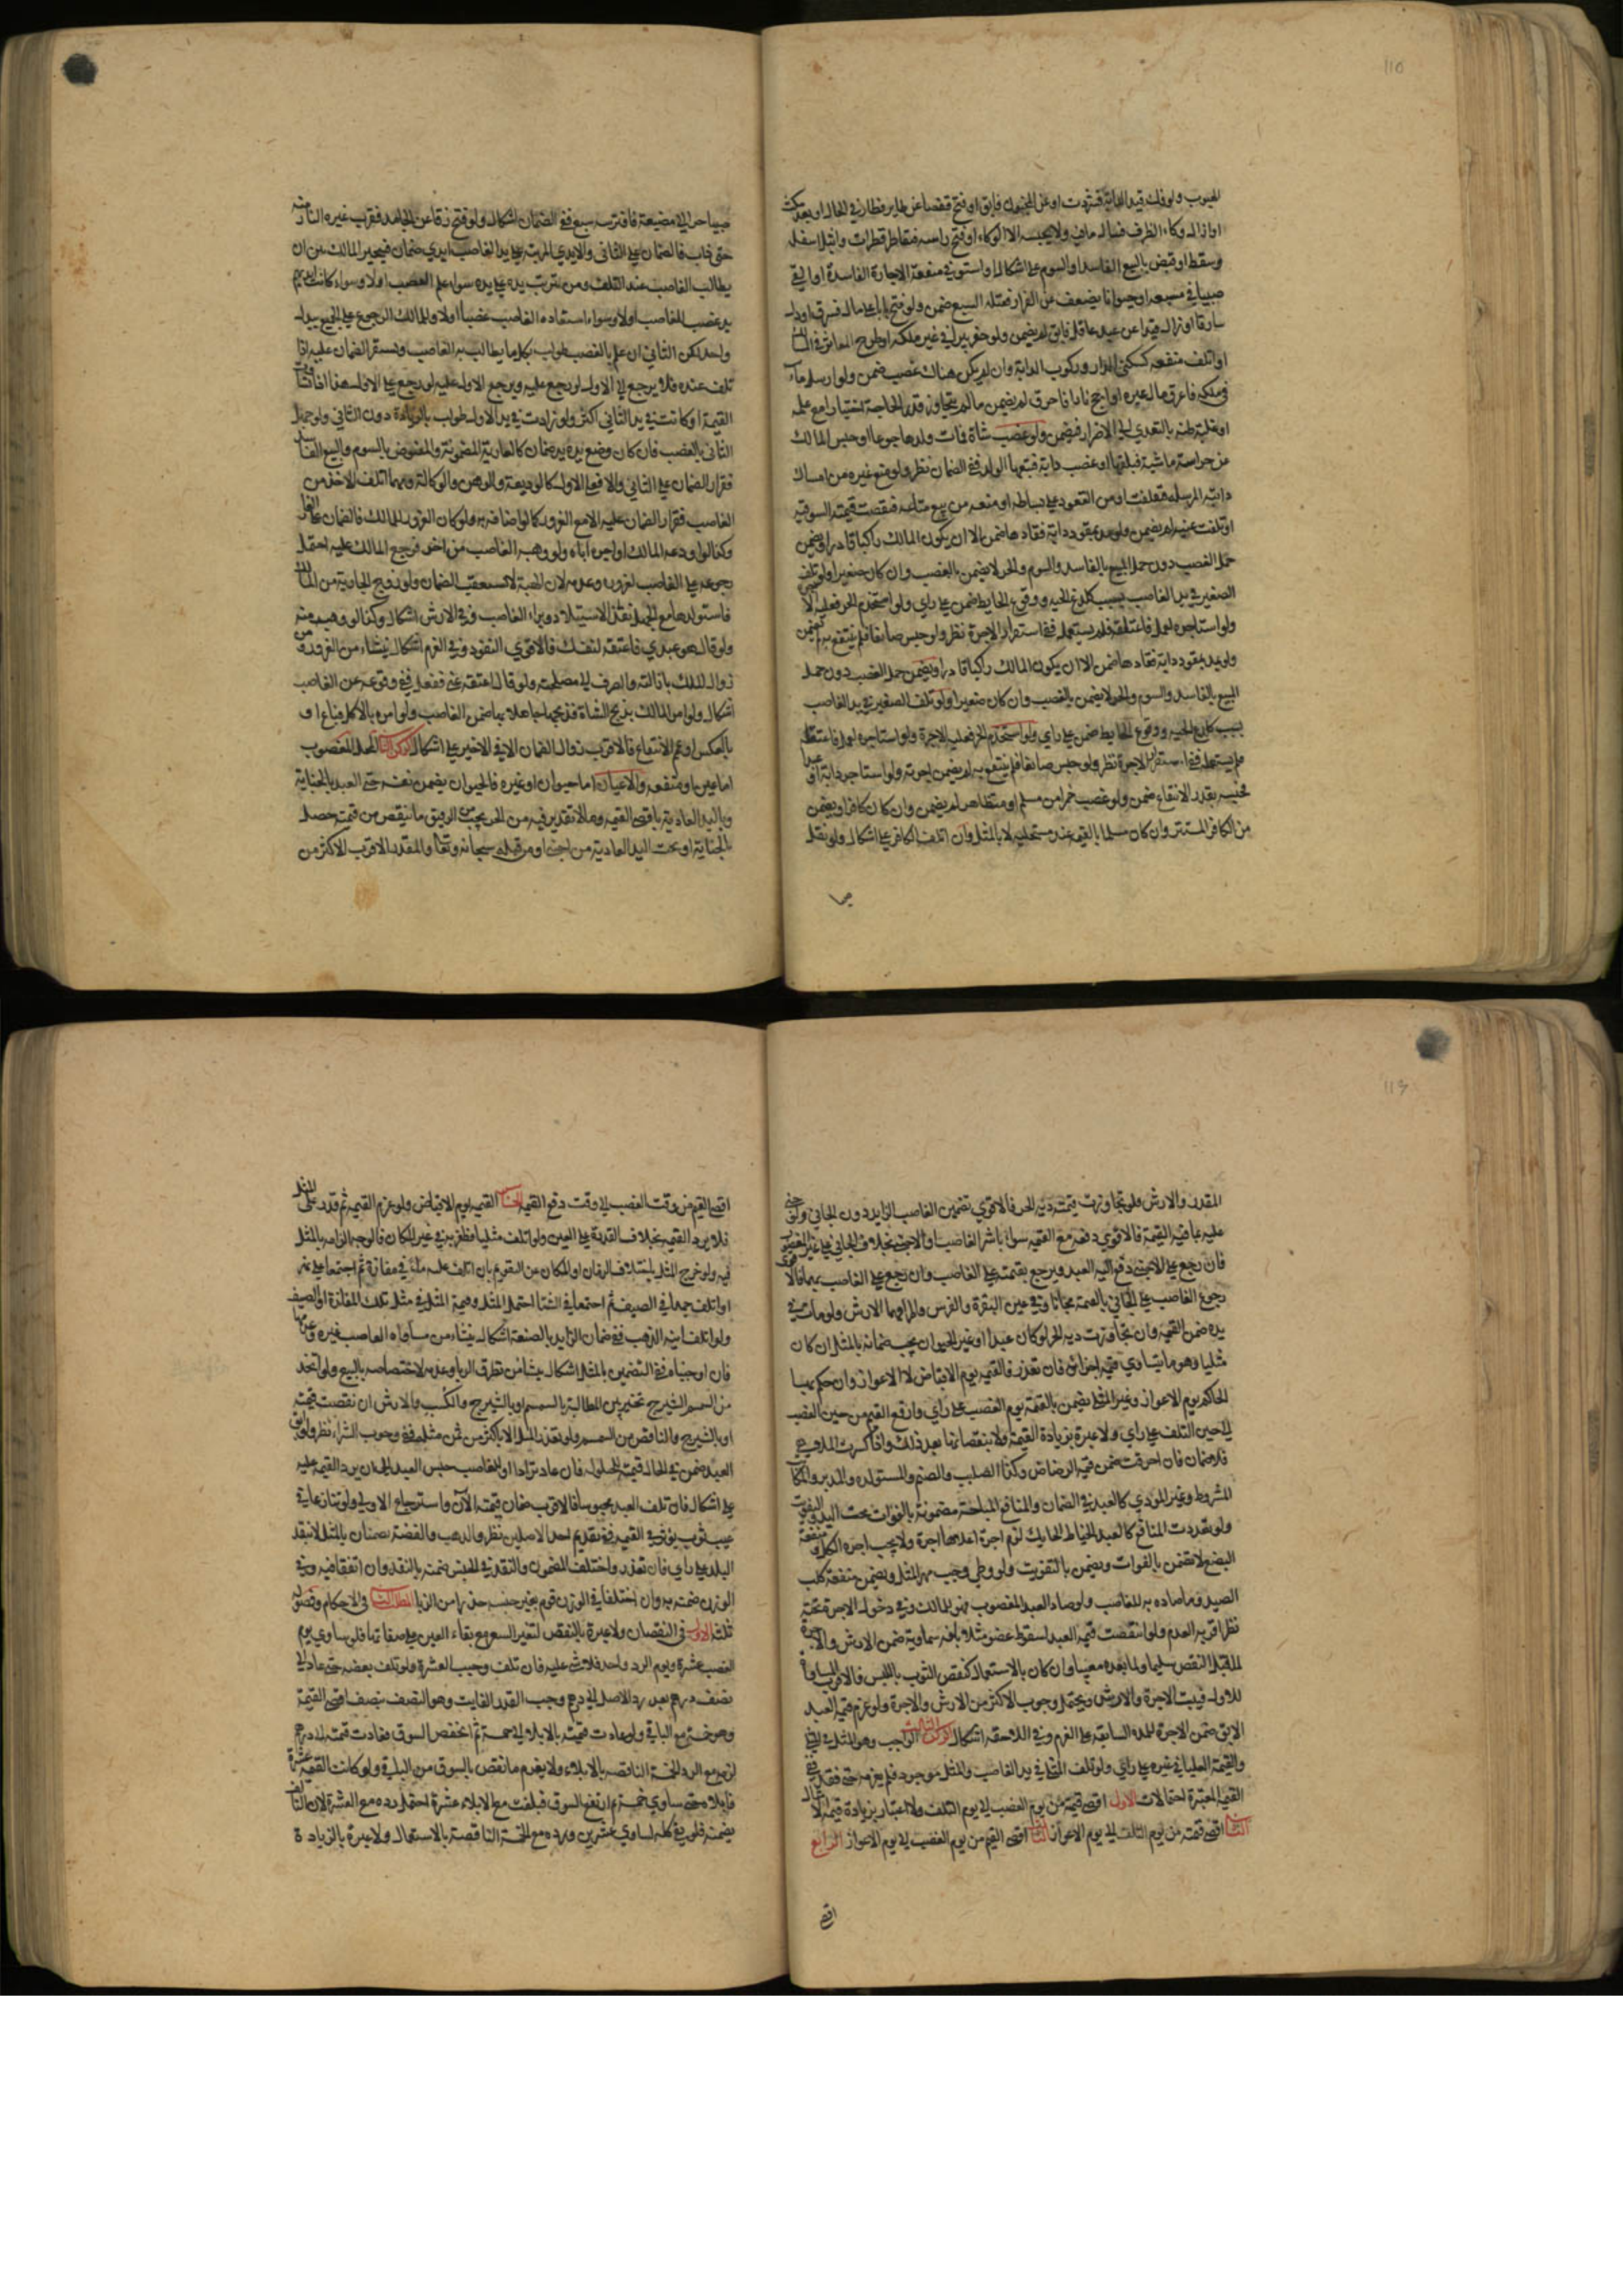 الهبوب ولو فك قيد الدابة فشردت او عن المجنون فابق او فتح قفصا عن طاير فطار في الحال او بعد مكث
او ازال وكاء الظرف فسال ما فيه ولا يحبسه الا الوكاء او فتح راسه فتقاطر قطرات وابتل اسفله
وسقط او قبض بالبيع الفاسد او السوم على اشكال او استوفى منفعة الاجارة الفاسدة او القى
صبيا في مسبعة او حيوانا يضعف عن الفرار فقتله السبع ضمن ولو فتح بابا على مال فسرق او دل
سارقا او ازال قيدا عن عبد عاقل فابق لم يضمن ولو حفر بيرا في غير ملكه او طرح المعاثر في
او اتلف منفعة كسكنى الدار وركوب الدابة وان لم يكن هناك غصب ضمن ولو ارسل ماء
في ملكه فاغرق مال غيره او اجج نارا فاحرق لم يضمن ما لم يتجاوز قدر الحاجة اختيارا مع علمه
او غلبة ظنه بالتعدي الى الاضرار فيضمن ولو غصب شاة فمات ولدها جوعا او حبس المالك
عن حراسة ماشية فتلفت او غصب دابة فتبعها الولد ففي الضمان نظر ولو منع غيره من امساك
دابته المرسلة فتلفت او من القعود على بساطه او منعه من بيع متاعه فنقصت قيمته السوقية
او تلفت عينه لم يضمن ولو مد بمقود دابة فقادها ضمن الا ان يكون المالك راكبا قادرا ويضمن
حمل الغصب دون حمل المبيع بالفاسد والسوم والحر لا يضمن بالغصب وان كان صغيرا ولو تلف
الصغير في يد الغاصب بسبب كلدغ الحية ووقوع الحايط ضمن على راي ولو استخدم الحر فعليه
ولو استاجره لعمل فاعتقله فلم يستعمل ففي استقرار الاجرة نظر ولو حبس صانعا فلم ينتفع به لم يضمن
ولو مد بمقود دابة فقادها ضمن الا ان يكون المالك راكبا قادرا ويضمن حمل الغصب دون حمل
المبيع بالفاسد والسوم والحر لا يضمن بالغصب وان كان صغيرا ولو تلف الصغير في يد الغاصب
بسبب كلدغ الحية ووقوع الحايط ضمن على راي ولو استخدم الحر فعليه الاجرة ولو استاجره لعمل فاعتقله
فلم يستعمله ففي استقرار الاجرة نظر ولو حبس صانعا فلم ينتفع به لم يضمن اجرته ولو استاجر دابة او عبدا
فحبسه بقدر الانتفاع ضمن ولو غصب خمرا من مسلم او متظاهر لم يضمن وان كان كافرا ويضمن
من الكافر المستتر وان كان مسلما بالقيمة عند مستحليه لا بالمثل وان اتلف الكافر على اشكال ولو نقل
صبيا حرا الى مضيعة فافترسه سبع ففي الضمان اشكال ولو فتح زقا عن الجامد فقرب غيره النار منه
حتى ذاب فالضمان على الثاني والايدي المترتبة على يد الغاصب ايدي ضمان فيتخير المالك بين ان
يطالب الغاصب عند التلف ومن تترتب يده على يده سواء علم الغصب او لا وسواء كانت ايديهم
يد غصب للغاصب او لا وسواء استعاده الغاصب غصبا او لا وللمالك الرجوع على الجميع ببدل
واحد لكن الثاني ان علم بالغصب طولب بكل ما يطالب به الغاصب ويستقر الضمان عليه اذا
تلف عنده فلا يرجع الى الاول لو رجع عليه ويرجع الاول عليه لو رجع على الاول هذا اذا تساوت
القيمة او كانت في يد الثاني اكثر ولو زادت في يد الاول طولب بالزيادة دون الثاني ولو جهل
الثاني بالغصب فان كان وضع يده يد ضمان كالعارية المضمونة والمقبوض بالسوم والبيع الفاسد
فقرار الضمان على الثاني والا فعلى الاول كالوديعة والرهن والوكالة ومهما اتلف الاخذ من
الغاصب فقرار الضمان عليه الا مع الغرور كما لو اضافه به ولو كان الغرور للمالك فالضمان على الغار
وكذا لو اودعه المالك او اجره اياه ولو وهبه الغاصب من اخر فرجع المالك عليه احتمل
رجوعه على الغاصب لغروره وعدمه لان الهبة لا تستعقب الضمان ولو زوج الجارية من المالك
فاستولدها مع الجهل نفذ الاستيلاد وبراء الغاصب وفي الارش اشكال وكذا لو وهبه منه
ولو قال هو عبدي فاعتقه لنفسك فالاقوى النفوذ وفي الغرم اشكال ينشاء من الغرور ومن
زوال الملك بازالته والصرف الى مصلحته ولو قال اعتقه عني ففعل ففي وقوعه عن الغاصب
اشكال ولو امر المالك بذبح الشاة فذبحها جاهلا بها ضمن الغاصب ولو امره بالاكل فباع او
بالعكس او عمم الانتفاع فالاقرب زوال الضمان الا في الاخير على اشكال الركن الثاني المحل المغصوب
اما عين او منفعة والاعيان اما حيوان او غيره فالحيوان يضمن نفسه حتى العبد بالجناية
وباليد العادية باقصى القيمة وما لا تقدير فيه من الحر يجب من الرقيق ما ينقص من قيمته حصل
بالجناية او تحت اليد العادية من اجنبي او من قبله سبحانه وتعالى والمقدر الاقرب الاكثر من
المقدر والارش ولو تجاوزت قيمته دية الحر فالاقوى تضمين الغاصب الزايد دون الجاني ولو جنى
عليه بما فيه القيمة فالاقوى دفعه مع القيمة سواء باشر الغاصب او الاجنبي بخلاف الجاني على غير المغصوب
فان رجع على الاجنبي دفع اليه العبد ويرجع بقيمته على الغاصب وان رجع على الغاصب بهما فالاقوى
رجوع الغاصب على الجاني بالقيمة مجانا وفي عين البقرة والفرس واطرافهما الارش ولو مات في
يده ضمن القيمة وان تجاوزت دية الحر لو كان عبدا وغير الحيوان يجب ضمانه بالمثل ان كان
مثليا وهو ما تتساوى قيمة اجزائه فان تعذر فالقيمة يوم الاقباض لا الاعواز وان حكم بها
الحاكم يوم الاعواز وغير المثلي يضمن بالقيمة يوم الغصب على راي وارفع القيم من حين الغصب
الى حين التلف على راي ولا عبرة بزيادة القيمة ولا بنقصانها بعد ذلك واذا كسرت الملاهي
فلا ضمان فان احرقت ضمن قيمة الرضاض وكذا الصليب والصنم والمستولدة والمدبر والمكاتب
المشروط وغير المودي كالعبد في الضمان والمنافع المباحة مضمونة بالفوات تحت اليد والتفويت
ولو تعددت المنافع كالعبد الخياط الحايك لزم اجرة اعلاها اجرة ولا يجب اجرة الكل ومنفعة
البضع لا تضمن بالفوات ويضمن بالتفويت ولو وطئ وجب مهر المثل ويضمن منفعة كلب
الصيد فما صاده به للغاصب ولو صاد العبد المغصوب فهو للمالك وفي دخول الاجرة تحته
نظر اقربه العدم ولو انتقصت قيمة العبد بسقوط عضو مثلا بافة سماوية ضمن الارش والاجرة
لما قبل النقص سليما ولما بعده معيبا وان كان بالاستعمال كنقص الثوب باللبس فالاقرب المساواة
للاول فيثبت الاجرة والارش ويحتمل وجوب الاكثر من الارش والاجرة ولو غرم قيمة العبد
الابق ضمن الاجرة للمدة السابقة على الغرم وفي اللاحقة اشكال الركن الثالث الواجب وهو المثل في المثلي
والقيمة العليا في غيره على راي ولو تلف المثلي في يد الغاصب والمثل موجود فلم يغرمه حتى فقد ففي
القيمة المعتبرة احتمالات الاول اقصى قيمته من يوم الغصب الى يوم التلف ولا اعتبار بزيادة قيمة الامثال
الثاني اقصى قيمته من يوم التلف الى يوم الاعواز الثالث اقصى القيم من يوم الغصب الى يوم الاعواز الرابع
اقصى
اقصى القيم من وقت الغصب الى وقت دفع القيمة الخامس القيمة يوم الاقباض ولو غرم القيمة ثم قدر على المثل
فلا يرد القيمة بخلاف القدرة على العين ولو اتلف مثليا فظفر به في غير المكان فالوجه الزامه بالمثل
فيه ولو خرج المثل باختلاف الزمان او المكان عن التقويم بان اتلف عليه ماء في مفازة ثم اجتمعا على نهر
او اتلف جمدا في الصيف ثم اجتمعا في الشتا احتمل المثل وقيمة المثل في مثل تلك المفازة او الصيف
ولو اتلف انية الذهب ففي ضمان الزايد بالصنعة اشكال ينشاء من مساواة الغاصب غيره وعدمها
فان اوجبناه ففي التضمين بالمثل اشكال ينشا من تطرق الربا وعدمه لاختصاصه بالبيع ولو اتخذ
من السمسم الشيرج تخير بين المطالبة بالسمسم او بالشيرج والكسب والارش ان نقصت قيمته
او بالشيرج والناقص من السمسم ولو تعذر المثل الا باكثر من ثمن مثله ففي وجوب الشراء نظر ولو ابق
العبد ضمن في الحال قيمته للحيلولة فان عاد ترادا وللغاصب حبس العبد الى ان يرد القيمة عليه
على اشكال فان تلف العبد محبوسا فالاقرب ضمان قيمته الان واسترجاع الاولى ولو تنازعا في
عيب ثوب يؤثر في القيمة ففي تقديم احد الاصلين نظر والذهب والفضة يضمنان بالمثل لا بنقد
البلد على راي فان تعذر واختلف المضمون والنقد في الجنس ضمنه بالنقد وان اتفقا فيه وفي
الوزن ضمنه به وان اختلفا في الوزن قوم بغير جنسه حذرا من الربا المطلب الثاني في الاحكام وفصوله
ثلثة الاول في النقصان ولا عبرة بالنقص لتغير السعر مع بقاء العين على صفاتها فلو ساوى يوم
الغصب عشرة ويوم الرد واحد فلا شي عليه فان تلف وجب العشرة ولو تلف بعضه حتى عاد الى
نصف درهم بعد رد الاصل الى درهم وجب القدر الفايت وهو النصف بنصف اقصى القيمة
وهو خمسة مع الباقي ولو عادت قيمته بالابلاء الى خمسة ثم انخفض السوق فعادت قيمته الى درهم
لزمه مع الرد الخمسة الناقصة بالابلاء ولا يغرم ما نقص بالسوق من الباقي ولو كانت القيمة عشرة
فابلاه حتى ساوى خمسة ثم ارتفع السوق فبلغت مع الابلاء عشرة احتمل رده مع العشرة لان التالف
يضمنه فلو بقي كله لساوى عشرين ورده مع الخمسة الناقصة بالاستعمال ولا عبرة بالزيادة